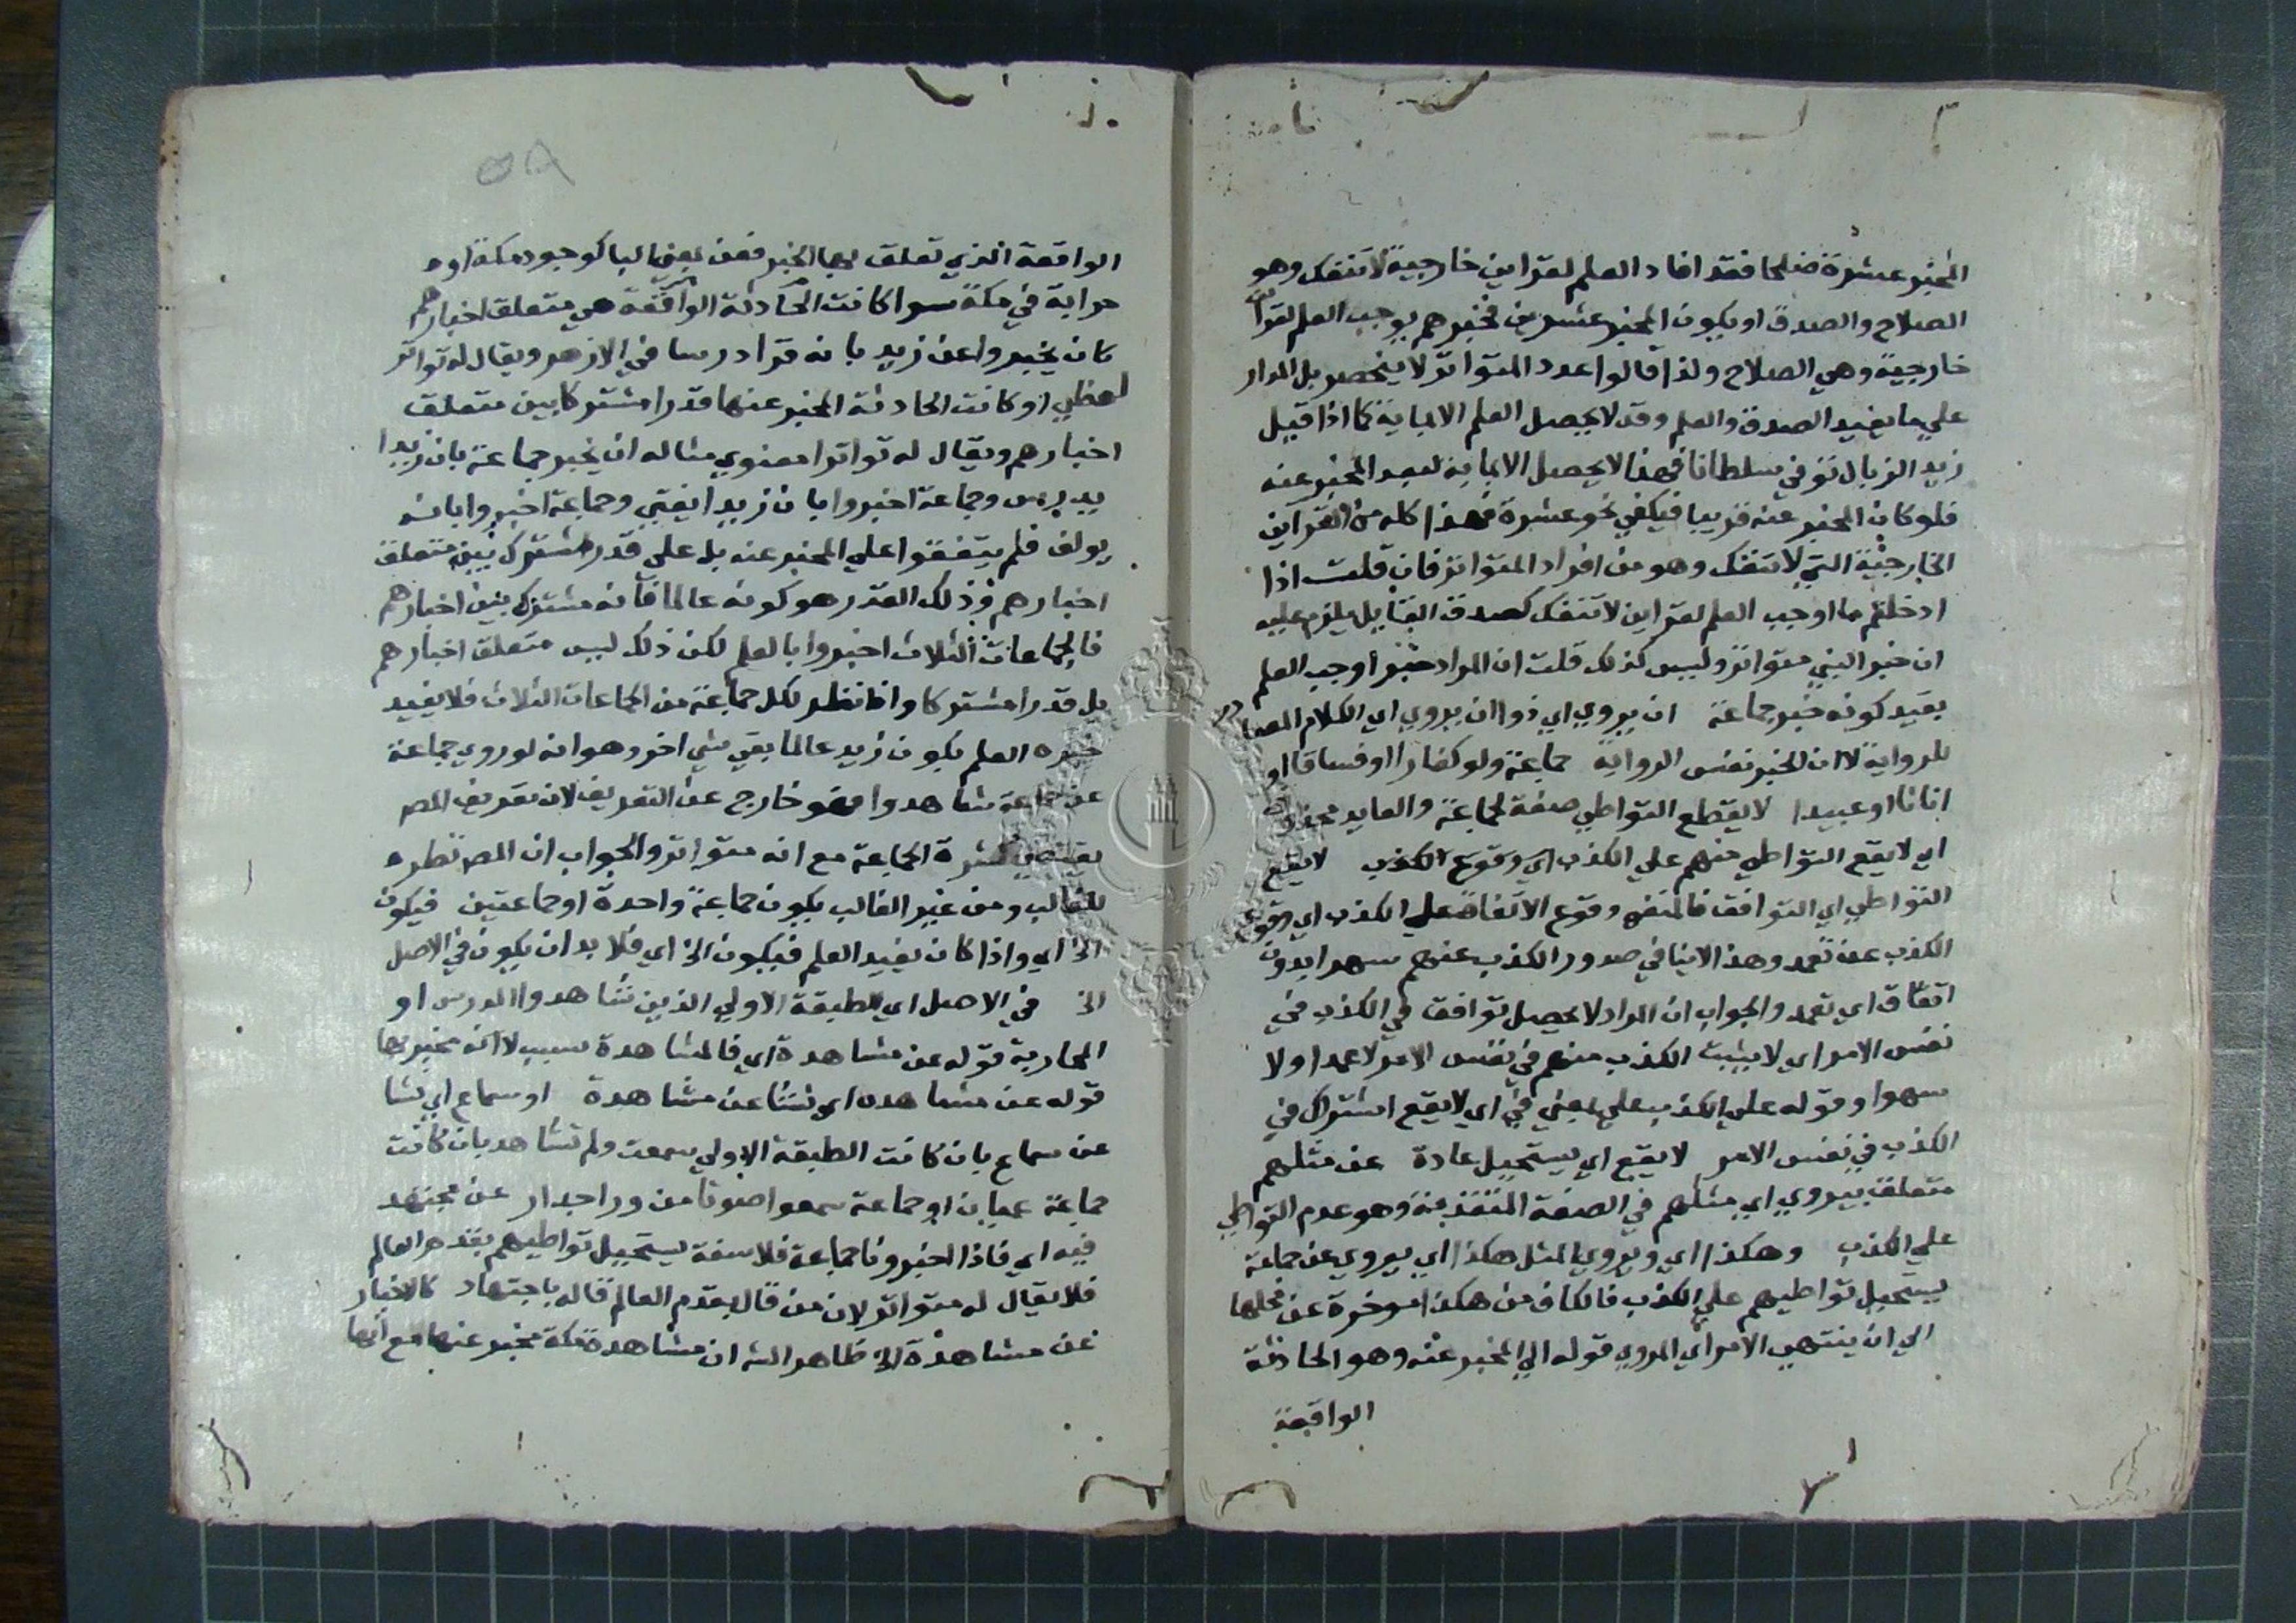 المخبر عشرة صلحا فقد افاد العلم لقراين خارجية لا تنفك وهو
الصلاح والصدق او يكون المخبر عشرين فخبرهم يوجب العلم لقراين
خارجية وهي الصلاح ولذا قالوا عدد المتواتر لا ينحصر بل المدار
علي ما يفيد الصدق والعلم وقد لا يحصل العلم الا بماية كما اذا قيل
زيد الزبال تو في سلطانا فهذا لا يحصل الا بماية لبعد المخبر عنه
فلو كان المخبر عنه قريبا فيكفي نحو عشرة فهذا كله من القراين
الخارجية التي لا تنفك وهو من افراد المتواتر فان قلت اذا
ادخلتم ما اوجب العلم لقراين لا تنفك كصدق القايل يلزم عليه
ان خبر النبي متواتر وليس كذلك قلت ان المراد خبر اوجب العلم
بقيد كونه خبر جماعة ان يروي اي ذو ان يروي اي الكلام الصادر
للرواية لا ان الخبر نفس الرواية جماعة ولو كفارا او فساقا او
اناثا او عبيدا لا يقطع التواطي صفة لجماعة والعايد محذوف
اي لا يقع التواطي منهم علي الكذب اي وقوع الكذب لا يقع
التواطي اي التوافق فالمنفي وقوع الاتفاق علي الكذب اي وقوع
الكذب عن تعمد وهذا لا ينافي صدور الكذب عنهم سهوا بدون
اتفاق اي تعمد والجواب ان المراد لا يحصل توافق في الكذب في
نفس الامر اي لا يثبت الكذب منهم في نفس الامر لا عمدا ولا
سهوا وقوله علي الكذب علي بمعني في اي لا يقع اشتراك في
الكذب في نفس الامر لا يقع اي يستحيل عادة عن مثلهم
متعلق بيروي اي مثلهم في الصفة المتقدمة وهو عدم التواطي
علي الكذب وهكذا اي ويروي المثل هكذا اي يروي عن جماعة
يستحيل تواطيهم علي الكذب فالكاف من هكذا موخرة عن محلها
الي ان ينتهي الامر اي المروي قوله الي المخبر عنه وهو الحادثة
الواقعة
الواقعة الذي تعلق بها الخبر فعن بمعني البا كوجود مكة او
حرابة في مكة سوا كانت الحادثة الواقعة هي متعلق اخبارهم
كان يخبروا عن زيد بانه قرا درسا في الازهر ويقال له تواتر
لفظي او كانت الحادثة المخبر عنها قدرا مشتركا بين متعلق
اخبارهم ويقال له تواترا معنوي مثاله ان يخبر جماعة بان زيدا
يدرس وجماعة اخبروا بان زيدا يفتي وجماعة اخبروا بانه
يولف فلم يتفقوا علي المخبر عنه بل علي قدر مشترك بين متعلق
اخبارهم وذلك القدر هو كونه عالما فانه مشترك بين اخبارهم
فالجماعات الثلاث اخبروا بالعلم لكن ذلك ليس متعلق اخبارهم
بل قدرا مشتركا واما نظر لكل جماعة من الجماعات الثلاث فلا يفيد
خبره العلم بكون زيد عالما بقي شي اخر وهو انه لو روي جماعة
عن جماعة شاهدوا فهو خارج عن التعريف لان تعريف المصـ
يقتضي كثرة الجماعة مع انه متواتر والجواب ان المصـ نظره
للغالب ومن غير الغالب يكون جماعة واحدة او جماعتين فيكون
الخ اي واذا كان يفيد العلم فيكون الخ اي فلا بد ان يكون في الاصل
الخ في الاصل اي الطبقة الاولي الذين شاهدوا الدرس او
الحرابة قوله عن مشاهدة اي فالمشاهدة سبب لا انه مخبر بها
قوله عن مشاهده اي نشا عن مشاهدة او سماع اي نشا
عن سماع بان كانت الطبقة الاولي سمعت ولم تشاهد بان كانت
جماعة عميان او جماعة سمعوا صوتا من ورا جدار عن مجتهد
فيه اي فاذا اخبرونا جماعة فلاسفة يستحيل تواطيهم بقدم العالم
فلا يقال له متواتر لان من قال بقدم العالم قاله باجتهاد كالاخبار
عن مشاهدة الخ ظاهر الشـ ان مشاهدة مكة مخبر عنها مع انها